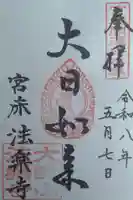 奉拝
令和八年
五月七日
大日如来
宮床 法楽寺